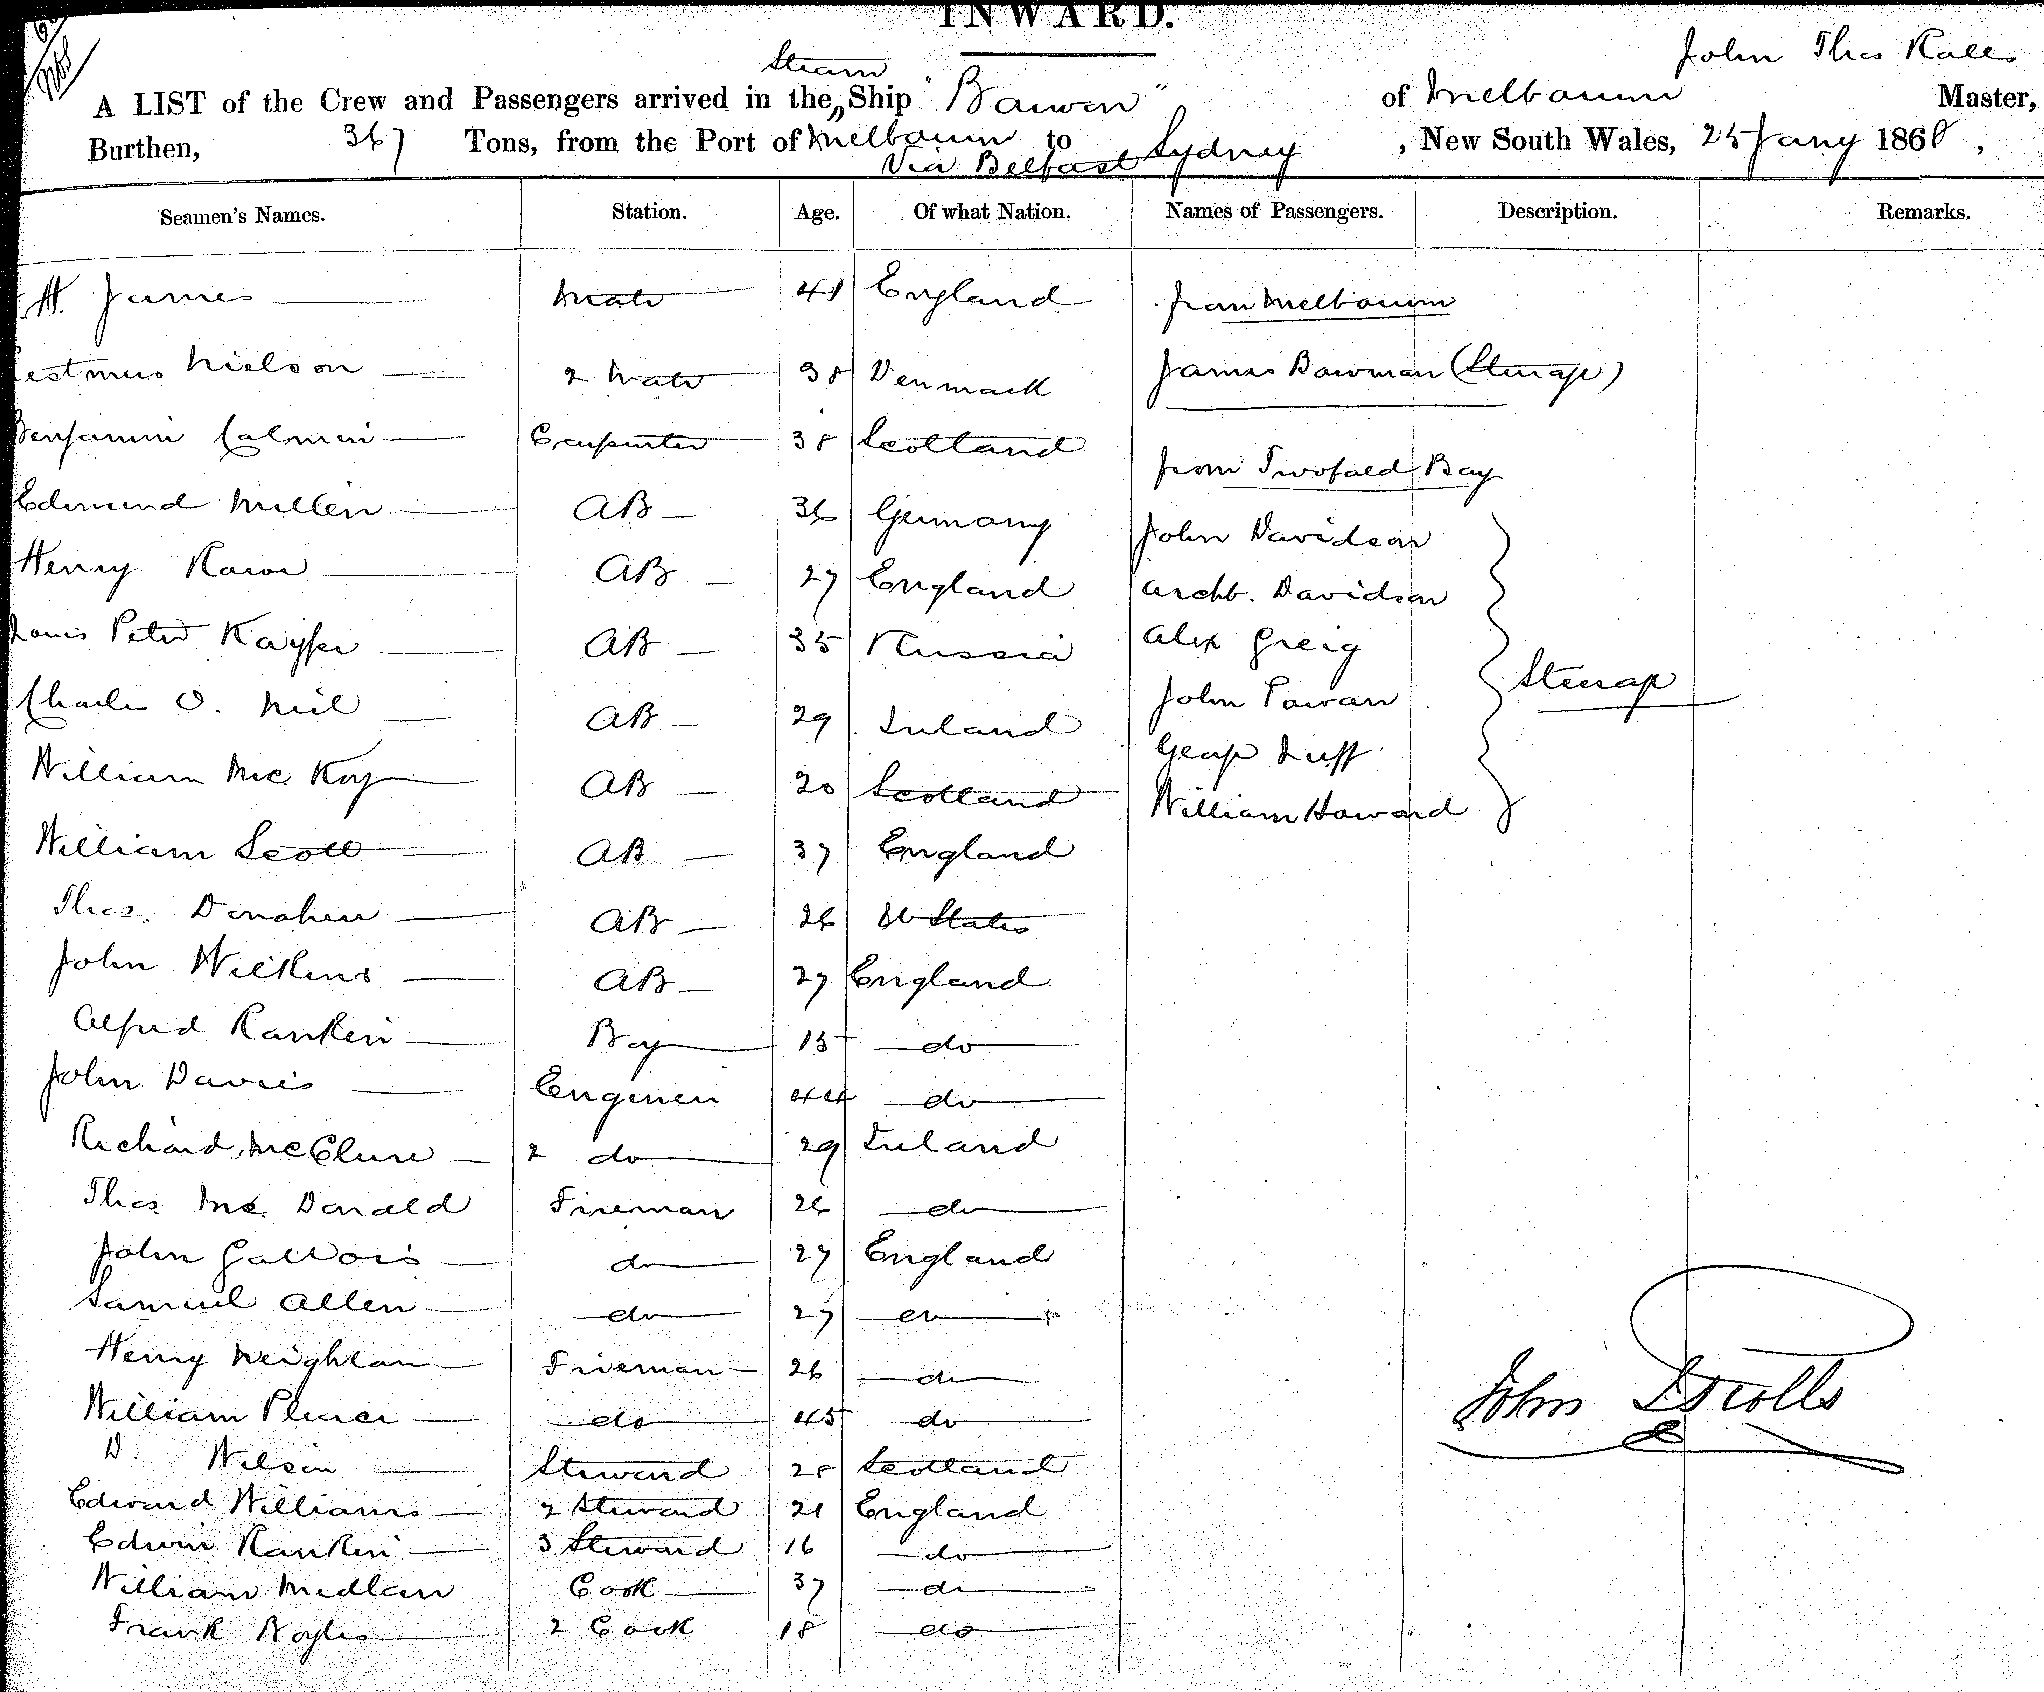 INWARD.
Steam John Thos Rolls
A LIST of the Crew and Passengers arrived in the „Ship "Barwon" of Melbourne Master,
Burthen, 367 Tons, from the Port of Melbourne to Sydney, New South Wales, 25 Jany 1868,
Via Belfast
Seamen's Names. Station. Age. Of what Nation. Names of Passengers. Description. Remarks.
H. James Mate 41 England From Melbourne
Nielson 2 Mate 38 Denmark James Bowman (Steerage)
Benjamin Carpenter 38 Scotland
From Twofold Bay
Edmund Millen AB 36 Germany John Davidson
Henry AB 27 England Archb. Davidson
Louis Peter Kaysser AB 35 Russia Alex Greig
Charles O. Neil AB 29 Ireland John Steerage
William Mc Koy AB 20 Scotland George Duff
William Howard
William Scott AB 37 England
Thos. Donahue AB 26 U States
John Wilkins AB 27 England
Alfred Rankin Boy 15 do
John Davies Engineer 44 do
Richard McClure 2 do 29 Ireland
Thos Mc. Donald Fireman 26 do
John do 27 England
Samuel Allen do 27 do
Henry Weighton Fireman 26 do
William do 45 do
D. Wilson Steward 28 Scotland
Edward Williams 2 Steward 21 England
Edwin Rankin 3 Steward 16 do
William Medlan Cook 37 do
Frank Boyles 2 Cook 18 do
John T Rolls